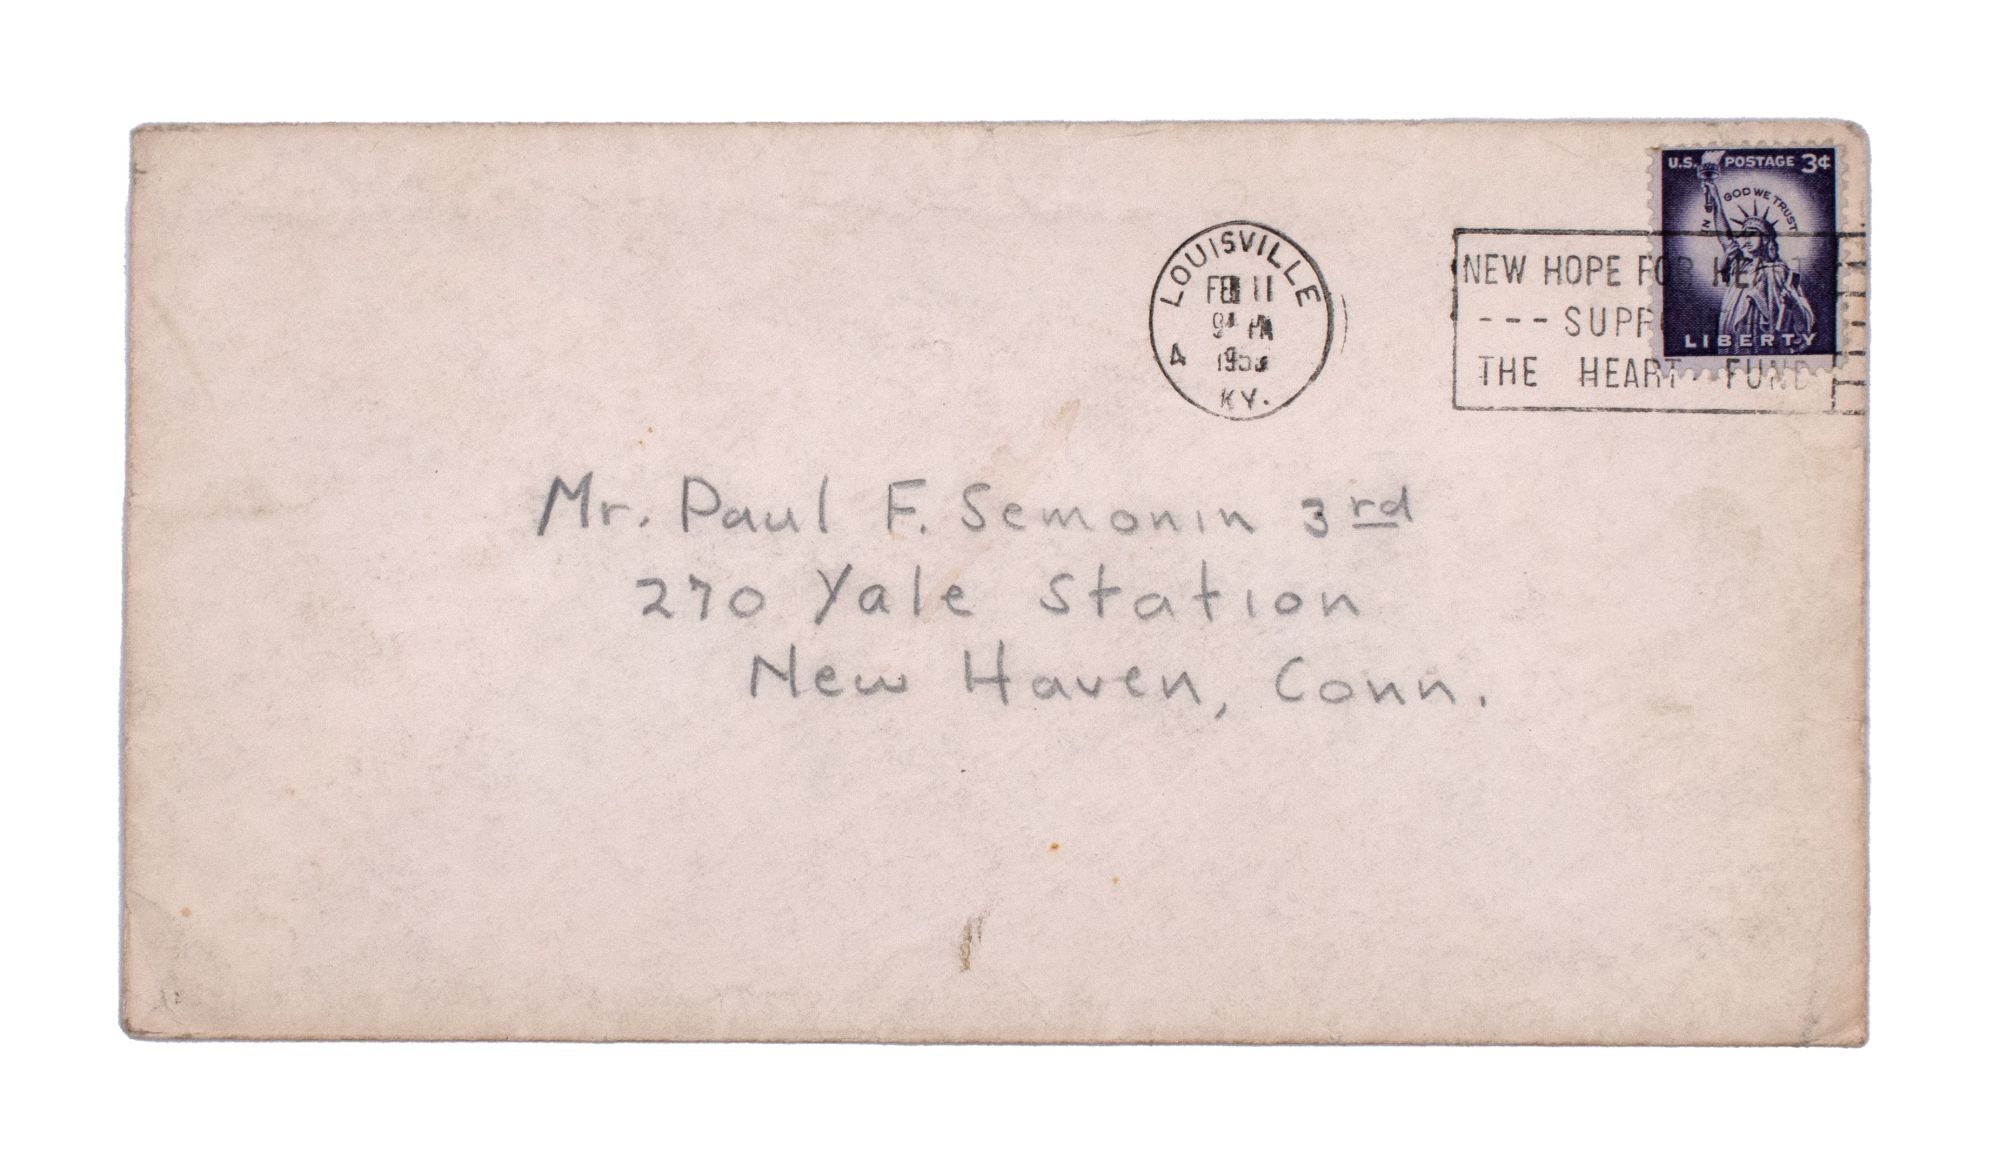 U.S. POSTAGE 3¢
IN GOD WE TRUST
LIBERTY
LOUISVILLE
FEB 11
PM
4
KY.
NEW HOPE FOR HEA
--- SUPP
THE HEART FUND
Mr. Paul F. Semonin 3rd
270 Yale Station
New Haven, Conn.